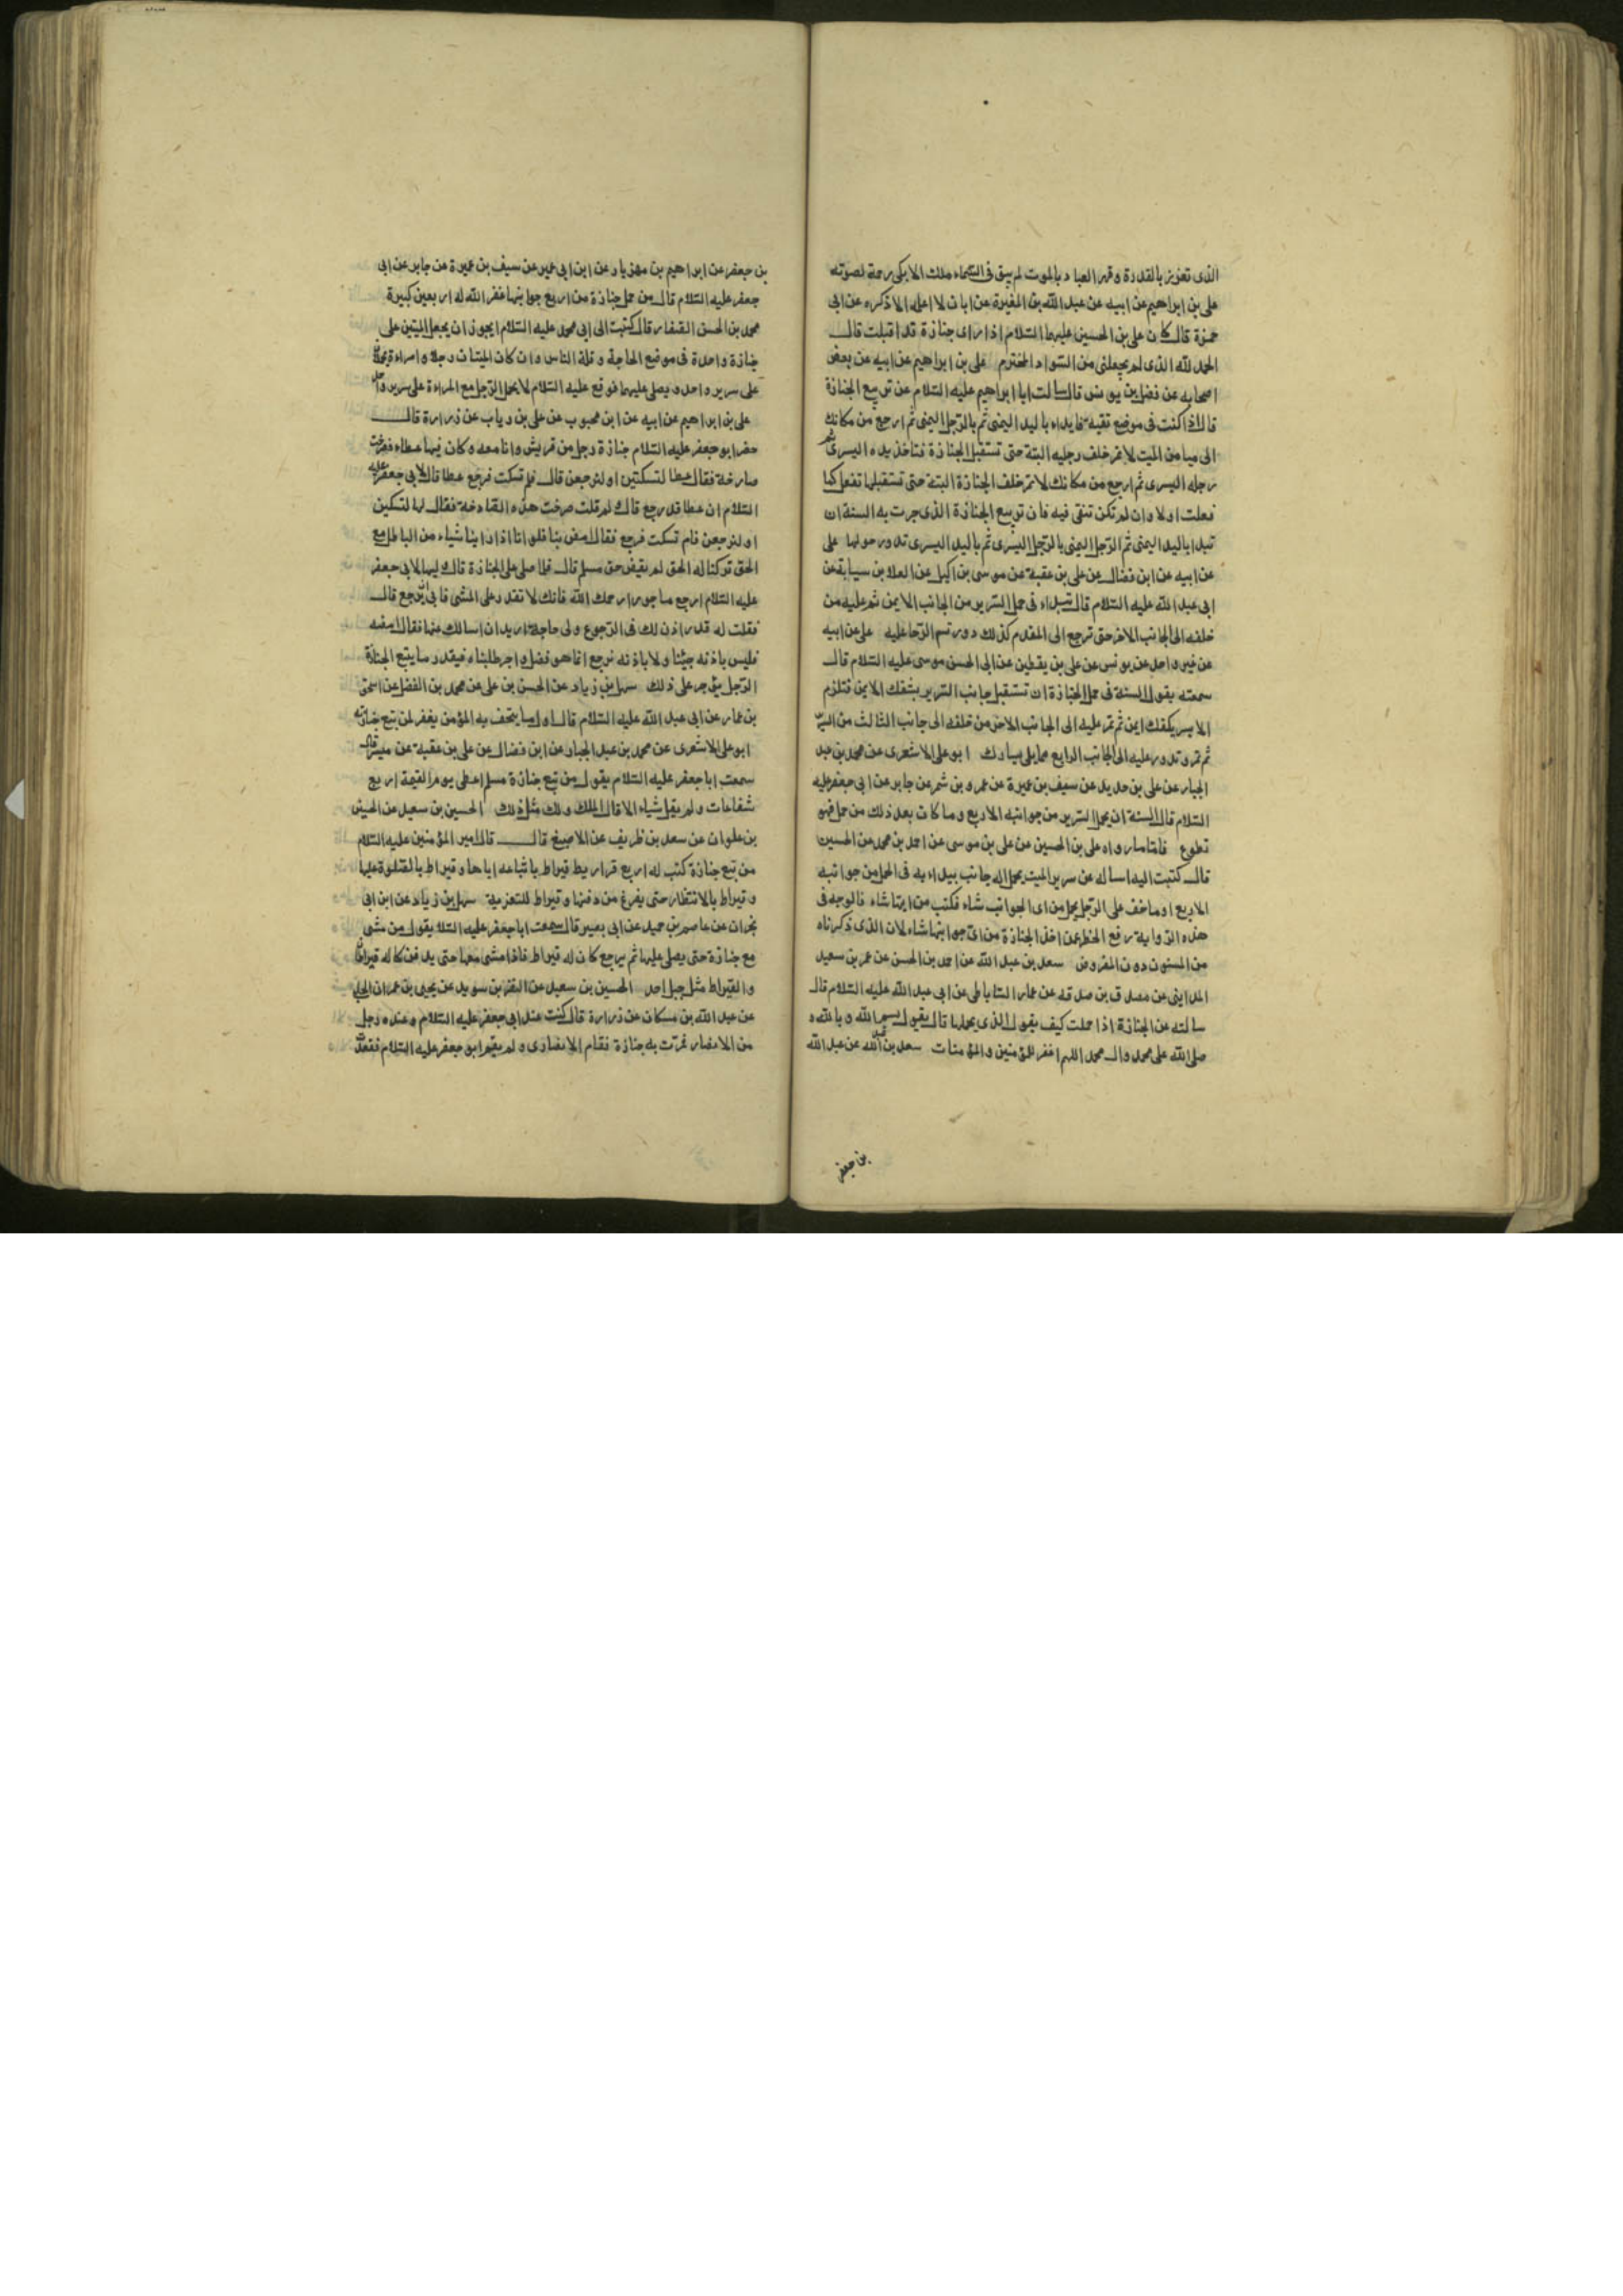 الذى تعزز بالقدرة وقهر العباد بالموت لم يبق فى السماء ملك الا بكى رحمة لصوته
على بن ابراهيم عن ابيه عن عبد الله بن المغيرة عن ابان لا اعلمه الا ذكره عن ابى
حمزة قال كان على بن الحسين عليهما السلام اذا راى جنازة قد اقبلت قال
الحمد لله الذى لم يجعلنى من السواد المخترم على بن ابراهيم عن ابيه عن بعض
اصحابه عن فضل بن يونس قال سالت ابا ابراهيم عليه السلام عن تربيع الجنازة
قال اذا كنت فى موضع تقية فابداء باليد اليمنى ثم بالرجل اليمنى ثم ارجع من مكانك
الى ميامن الميت لا تمر خلف رجليه البتة حتى تستقبل الجنازة فتاخذ يده اليسرى ثم
رجله اليسرى ثم ارجع من مكانك لا تمر خلف الجنازة البتة حتى تستقبلها تفعل كما
فعلت اولا وان لم تكن تتقى فيه فان تربيع الجنازة الذى جرت به السنة ان
تبدا باليد اليمنى ثم الرجل اليمنى بالرجل اليسرى ثم باليد اليسرى تدور حولها على
عن ابيه عن ابن فضال عن على بن عقبة عن موسى بن اكيل عن العلا بن سيابة عن
ابى عبد الله عليه السلام قال تبداء فى حمل السرير من الجانب الايمن ثم عليه من
خلفه الى الجانب الاخر حتى ترجع الى المقدم كذلك دورتم الرحا عليه على عن ابيه
عن غير واحد عن يونس عن على بن يقطين عن ابى الحسن موسى عليه السلام قال
سمعته يقول السنة فى حمل الجنازة ان تستقبل جانب السرير بشقك الايمن فتلزم
الايسر بكفك ايمن ثم تمر عليه الى الجانب الاخر من خلفه الى جانب الثالث من السرير
ثم تمر وتدور عليه الى الجانب الرابع مما يلى يسارك ابو على الاشعرى عن محمد بن عبد
الجبار عن على بن حديد عن سيف بن عميرة عن عمرو بن شمر عن جابر عن ابى جعفر عليه
السلام قال السنة ان يحمل السرير من جوانبه الاربع وما كان بعد ذلك من حمل فهو
تطوع فاما ما رواه على بن الحسين عن على بن موسى عن احمد بن محمد عن الحسين
قال كتبت اليه اساله عن سرير الميت يحمل اله جانب يبداء به فى الحمل من جوانبه
الاربع او ما خف على الرجل يحمل من اى الجوانب شاء فكتب من ايها شاء فالوجه فى
هذه الرواية رفع الحظر عمن اخذ الجنازة من اى جوانبها شاء لان الذى ذكرناه
من المسنون دون المفروض سعد بن عبد الله عن احمد بن الحسن عن عمر بن سعيد
المداينى عن مصدق بن صدقه عن عمار الساباطى عن ابى عبد الله عليه السلام قال
سالته عن الجنازة اذا حملت كيف يقول الذى يحملها قال يقول بسم الله وبالله و
صلى الله على محمد وال محمد اللهم اغفر للمؤمنين والمؤمنات سعد بن عبد الله عن عبد الله
بن جعفر
بن جعفر عن ابراهيم بن مهزيار عن ابن ابى عمير عن سيف بن عميرة عن جابر عن ابى
جعفر عليه السلام قال من حمل جنازة من اربع جوانبها غفر الله له اربعين كبيرة
محمد بن الحسن الصفار قال كتبت الى ابى محمد عليه السلام ايجوز ان يجعل الميتين على
جنازة واحدة فى موضع الحاجة وقلة الناس وان كان الميتان رجلا وامراءة يحملان
على سرير واحد ويصلى عليهما فوقع عليه السلام لا يحمل الرجل مع المراءة على سرير واحد
على بن ابراهيم عن ابيه عن ابن محبوب عن على بن رياب عن زرارة قال
حضر ابو جعفر عليه السلام جنازة رجل من قريش وانا معه وكان فيها عطاء فصرخت
صارخة فقال عطا لتسكتين او لنرجعن قال فلم تسكت فرجع عطا قال لابى جعفر عليه
السلام ان عطا قد رجع قال ولم قلت صرخت هذه الصارخة فقال لها لتسكتين
او لنرجعن فلم تسكت فرجع فقال امض بنا فلو انا اذا راينا شياء من الباطل مع
الحق تركنا له الحق لم نقض حق مسلم قال فلما صلى على الجنازة قال وليها لابى جعفر
عليه السلام ارجع ماجورا رحمك الله فانك لا تقدر على المشى فابى ان يرجع قال
فقلت له قد اذن لك فى الرجوع ولى حاجة اريد ان اسالك عنها فقال امضه
فليس باذنه جيئنا ولا باذنه نرجع انما هو فضل واجر طلبناه فبقدر ما يتبع الجنازة
الرجل يؤجر على ذلك سهل بن زياد عن الحسن بن على عن محمد بن الفضل عن اسحق
بن عمار عن ابى عبد الله عليه السلام قال اول ما يتحف به المؤمن يغفر لمن تبع جنازته
ابو على الاشعرى عن محمد بن عبد الجبار عن ابن فضال عن على بن عقبة عن ميسر قال
سمعت ابا جعفر عليه السلام يقول من تبع جنازة مسلم اعطى يوم القيمة اربع
شفاعات ولم يقل شياء الا قال الملك ولك مثل ذلك الحسين بن سعيد عن الحسين
بن علوان عن سعد بن ظريف عن الاصبغ قال قال امير المؤمنين عليه السلام
من تبع جنازة كتب له اربع قراريط قيراط باتباعه اياها وقيراط بالصلوة عليها
وقيراط بالانتظار حتى يفرغ من دفنها وقيراط للتعزية سهل بن زياد عن ابن ابى
نجران عن عاصم بن حميد عن ابى بصير قال سمعت ابا جعفر عليه السلا يقول من مشى
مع جنازة حتى يصلى عليها ثم يرجع كان له قيراط فاذا مشى معها حتى يدفن كا له قيراطان
والقيراط مثل جبل احد الحسين بن سعيد عن النضر بن سويد عن يحيى بن عمران الحلبى
عن عبد الله بن مسكان عن زرارة قال كنت عند ابى جعفر عليه السلام وعنده رجل
من الانصار فمرت به جنازة فقام الانصارى ولم يقم ابو جعفر عليه السلام فقعدت